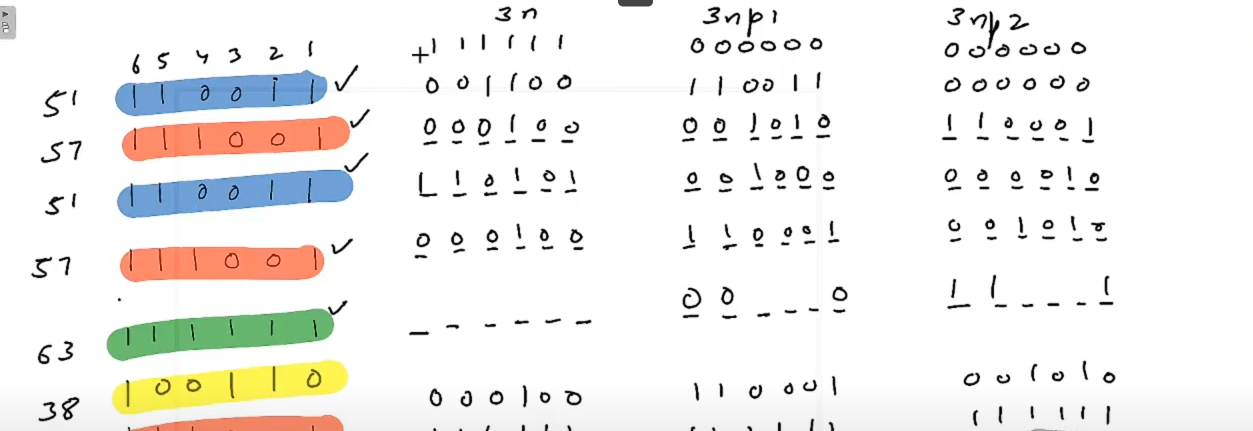 3n 3np1 3np2
6 5 4 3 2 1 +1 1 1 1 1 1 0 0 0 0 0 0 0 0 0 0 0 0
51 1 1 0 0 1 1 ✓ 0 0 1 1 0 0 1 1 0 0 1 1 0 0 0 0 0 0
57 1 1 1 0 0 1 ✓ 0 0 0 1 0 0 0 0 1 0 1 0 1 1 0 0 0 1
51 1 1 0 0 1 1 ✓ 1 1 0 1 0 1 0 0 1 0 0 0 0 0 0 0 1 0
57 1 1 1 0 0 1 ✓ 0 0 0 1 0 0 1 1 0 0 0 1 0 0 1 0 1 0
63 1 1 1 1 1 1 ✓ _ _ _ _ _ _ 0 0 _ _ _ 0 1 1 _ _ _ 1
38 1 0 0 1 1 0 0 0 0 1 0 0 1 1 0 0 0 1 0 0 1 0 1 0
1 1 1 1 1 1